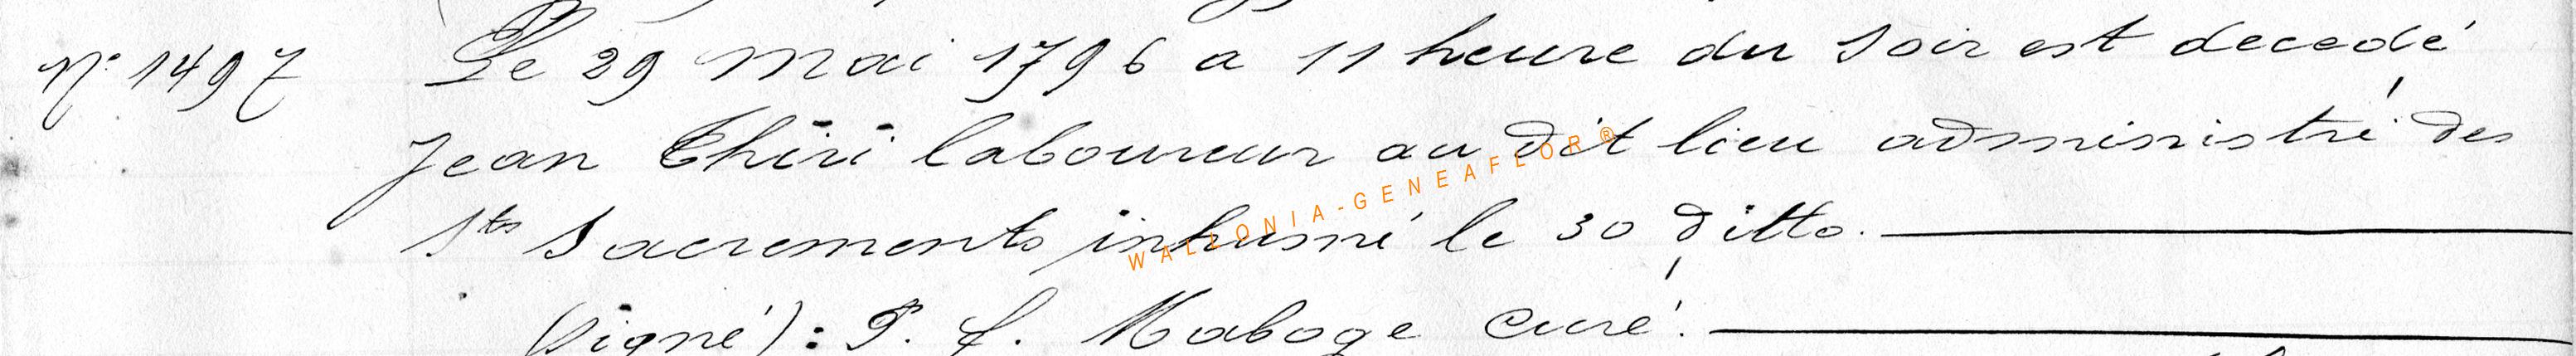 N° 1497 Le 29 mai 1796 a 11 heure du soir est decedé
Jean Thiri laboureur au dit lieu administré des
Sts Sacrements inhumé le 30 ditto.
(signé): P. f. Maboge curé.
WALLONIA-GENEAFLOR®